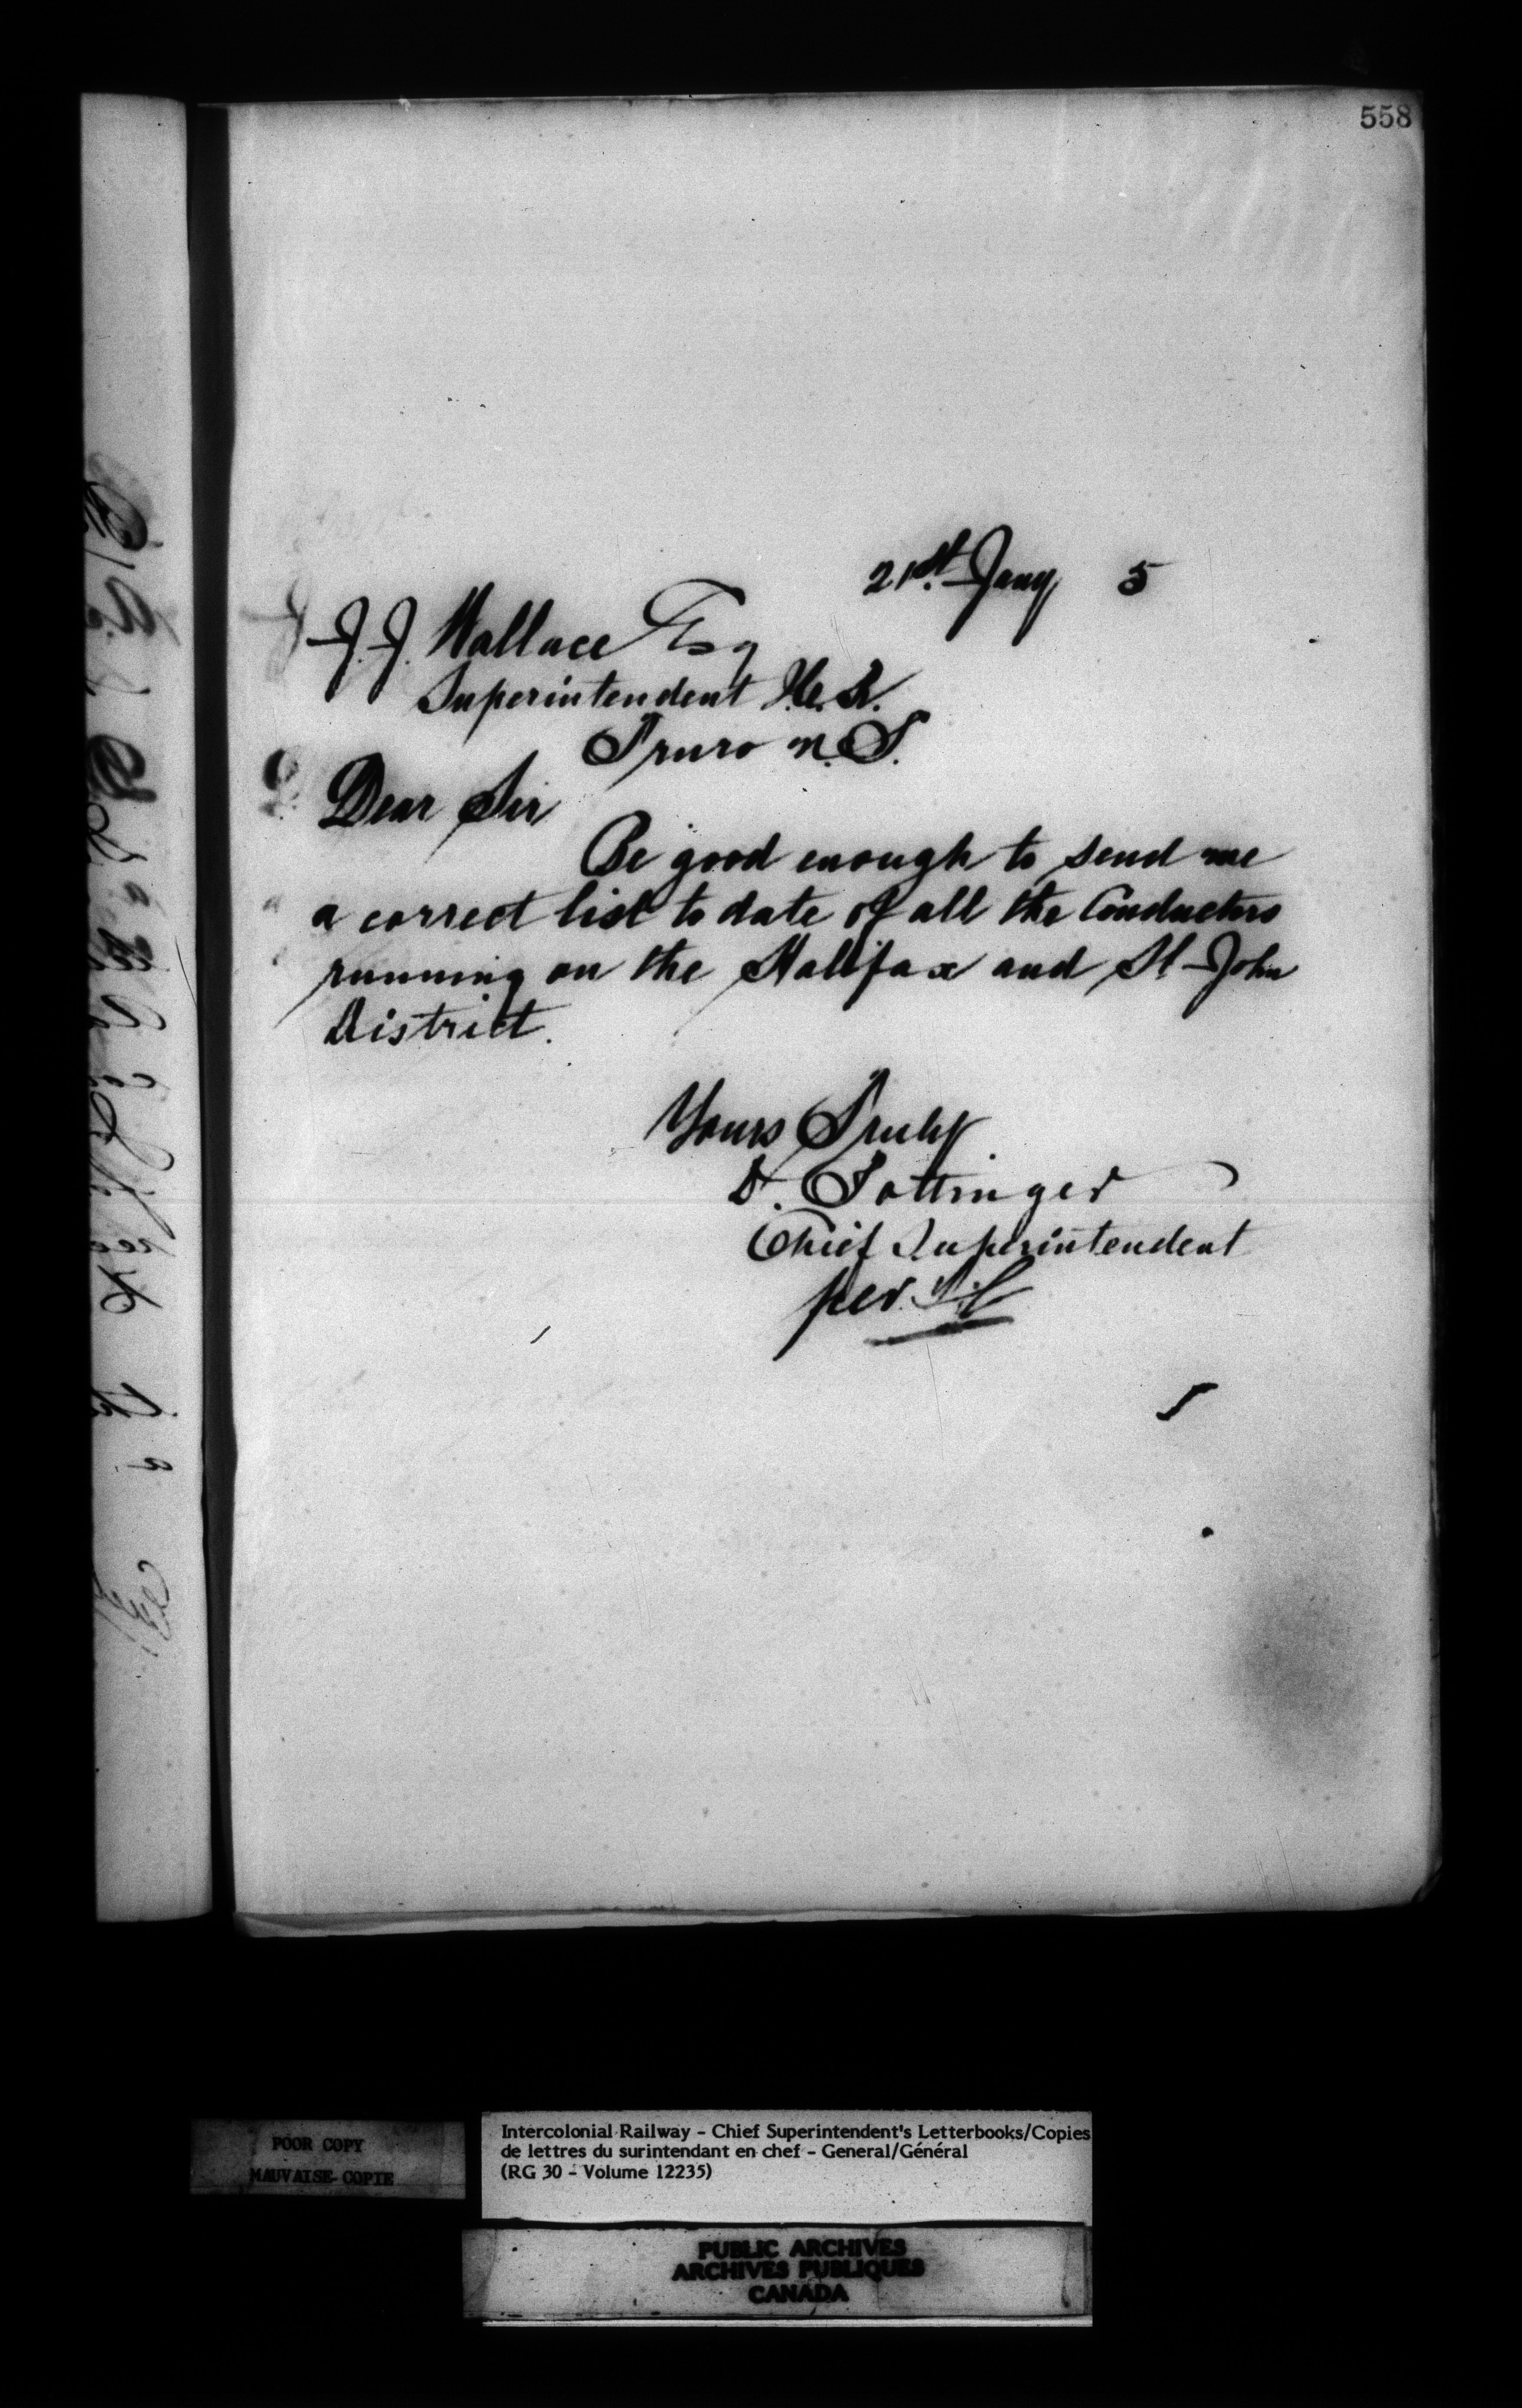 558
21st. Jany 5
J. J. Wallace Esq
Superintendent
Truro N. S.
Dear Sir
Be good enough to send me
a correct list to date of all the Conductors
running on the Halifax and St John
District.
Yours Truly
D. Pottinger
Chief Superintendent
per
POOR COPY
MAUVAISE COPIE
Intercolonial Railway - Chief Superintendent's Letterbooks/Copies
de lettres du surintendant en chef - General/Général
(RG 30 - Volume 12235)
PUBLIC ARCHIVES
ARCHIVES PUBLIQUES
CANADA